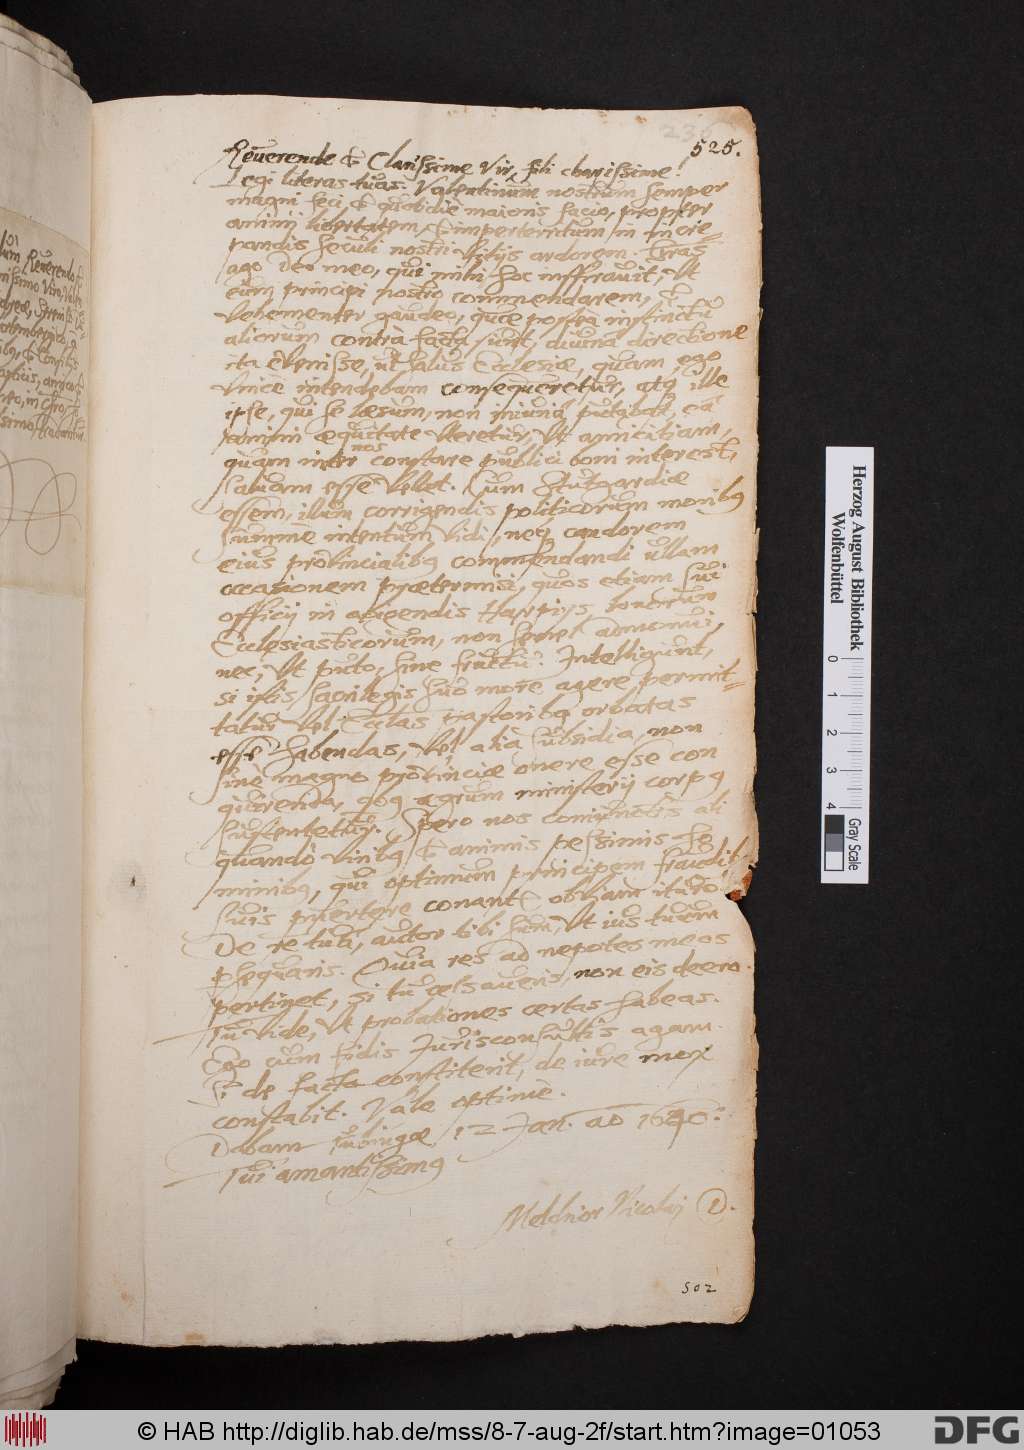 236
525.
Reverende & Clarissime Vir, fili charissime!
Legi literas tuas. Valentinum nostrum semper
magni feci, & quotidie maioris facio, propter
animi libertatem, & imperterritum in incre-
pandis seculi nostri vitijs ardorem. Gras
ago Deo meo, qui mihi hoc inspiravit, Ut
eum principi nostro commendarem, &
vehementer gaudeo, quæ postea instinctu
aliorum contrà facta sunt, divina directione
ita evenisse, ut salus Ecclesiæ, quam ego
unicè intendebam consequeretur, atq ille
ipse, qui se læsum, non iniuriâ putabat, eâ
animi æquitate uteretur, Ut amicitiam,
quam inter nos constare publici boni interest,
salvam esse velit. Cum Stutgardiæ
essem, illum corrigendis politicorum moribq
summè intentum vidi, neq candorem
eius provincialibq commendandi ullam
occasionem prætermisi, quos etiam sui
officij in abigendis Harpijs bonorum
Ecclesiasticorum, non semel admonui,
nec, Ut puto, sine fructu. Intelligunt,
si istis sacrilegis suo more agere permit-
tatur vel Ecclas Pastoribq orbatas
esse habendas, vel alia subsidia, non
sine magno provinciæ onere esse con
quirenda, qbq ægrum ministerij corpq
sustentetur. Spero nos coniunctis ali
quando viribq & animis pessimis ho
minibq, qui optimum principem fraudibq
suis pervertere conant obviam ituros
De re tua, autor tibi sum, Ut ius tuum
psequaris. Quia res ad nepotes meos
pertinet, si tu cessaveris, non eis deero.
Tu vide, Ut probationes certas habeas.
Ego cum fidis Jurisconsultis agam.
Si de facto constiterit, de iure mox
constabit. Vale optime.
Dabam Tubingæ 12 Jan. ao 1640.
Tui amantissimq
Melchior Nicolai D.
502
Herzog August Bibliothek
Wolfenbüttel
0 1 2 3 4
Gray Scale
© HAB http://diglib.hab.de/mss/8-7-aug-2f/start.htm?image=01053
DFG